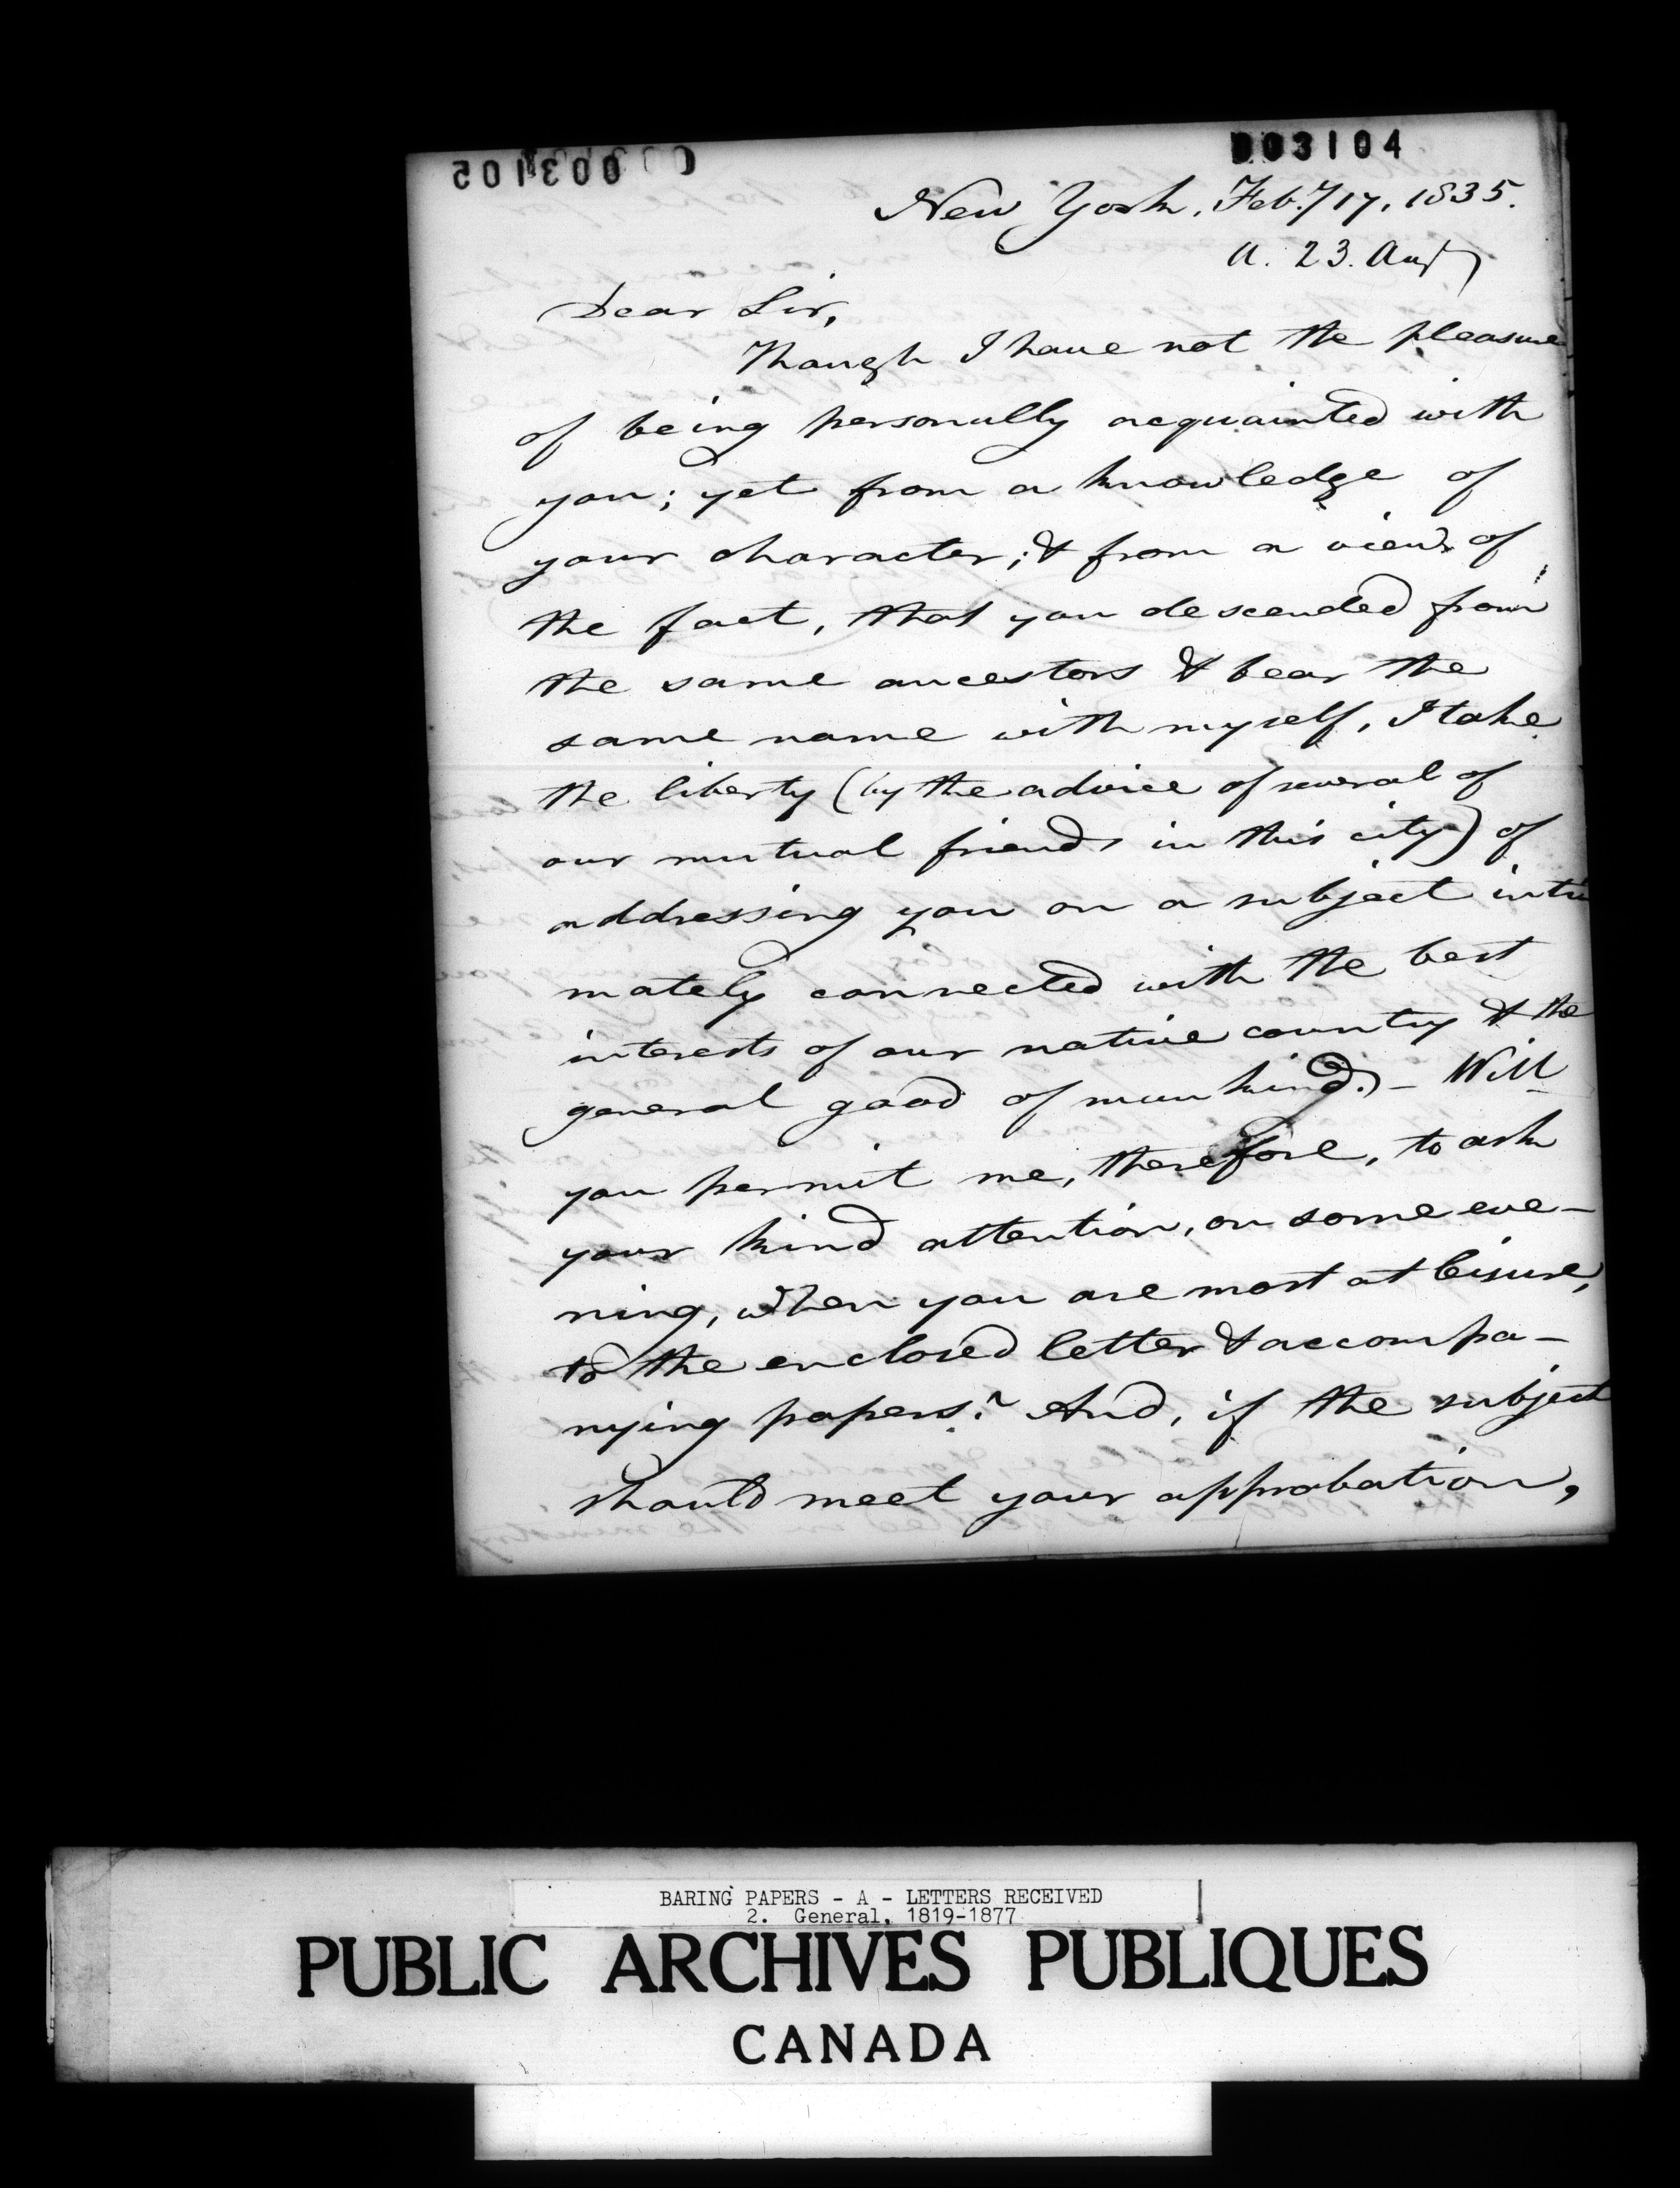 003104
003105
New York, Feb.y 17, 1835.
a. 23. Aug
Dear Sir,
Though I have not the pleasure
of being personally acquainted with
you; yet from a knowledge of
your character; & from a view of
the fact, that you descended from
the same ancestors & bear the
same name with myself, I take
the liberty (by the advice of several of
our mutual friends in this city) of
addressing you on a subject inti
mately connected with the best
interests of our native country & the
general good of mankind. - Will
you permit me, therefore, to ask
your kind attention, on some eve-
ning, when you are most at leisure,
to the enclosed letter & accompa-
nying papers? And, if the subject
should meet your approbation,
BARING PAPERS - A - LETTERS RECEIVED
2. General, 1819-1877
PUBLIC ARCHIVES PUBLIQUES
CANADA